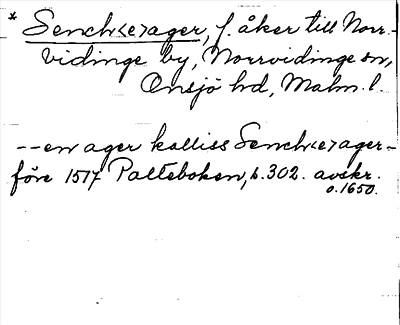 * Sench<e>ager, f. åker till Norr-
vidinge by, Norrvidinge sn,
Onsjö hd, Malm. l.
--en ager kalliss Sench<e>ager -
före 1517 Palteboken, s. 302. avskr.
o. 1650.